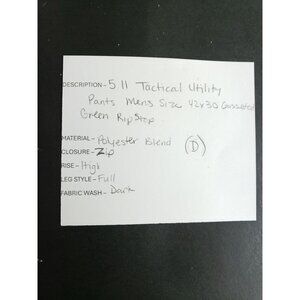 DESCRIPTION - 5 11 Tactical Utility
Pants Mens Size 42x30 Gusseted
Green RipStop
MATERIAL - Polyester Blend (D)
CLOSURE - Zip
RISE - High
LEG STYLE - Full
FABRIC WASH - Dark